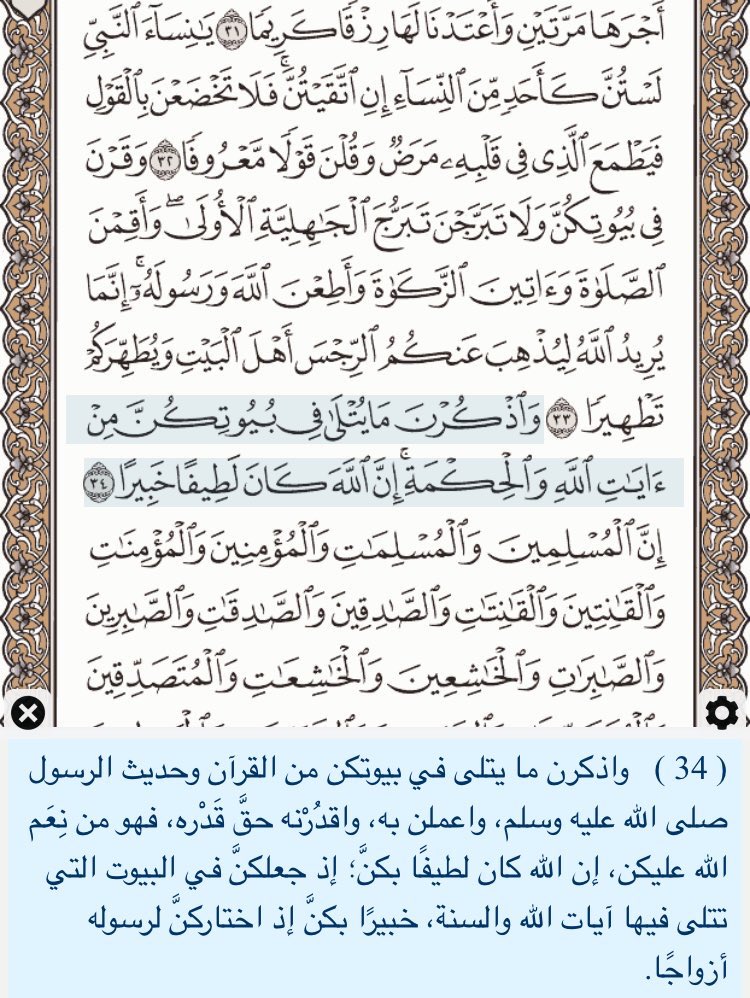 أَجْرَهَا مَرَّتَيْنِ وَأَعْتَدْنَا لَهَا رِزْقًا كَرِيمًا ٣١ يَٰنِسَآءَ ٱلنَّبِيِّ
لَسْتُنَّ كَأَحَدٍ مِّنَ ٱلنِّسَآءِ إِنِ ٱتَّقَيْتُنَّۚ فَلَا تَخْضَعْنَ بِٱلْقَوْلِ
فَيَطْمَعَ ٱلَّذِى فِى قَلْبِهِۦ مَرَضٌ وَقُلْنَ قَوْلًا مَّعْرُوفًا ٣٢ وَقَرْنَ
فِى بُيُوتِكُنَّ وَلَا تَبَرَّجْنَ تَبَرُّجَ ٱلْجَٰهِلِيَّةِ ٱلْأُولَىٰۖ وَأَقِمْنَ
ٱلصَّلَوٰةَ وَءَاتِينَ ٱلزَّكَوٰةَ وَأَطِعْنَ ٱللَّهَ وَرَسُولَهُۥٓۚ إِنَّمَا
يُرِيدُ ٱللَّهُ لِيُذْهِبَ عَنكُمُ ٱلرِّجْسَ أَهْلَ ٱلْبَيْتِ وَيُطَهِّرَكُمْ
تَطْهِيرًا ٣٣ وَٱذْكُرْنَ مَا يُتْلَىٰ فِى بُيُوتِكُنَّ مِنْ
ءَايَٰتِ ٱللَّهِ وَٱلْحِكْمَةِۚ إِنَّ ٱللَّهَ كَانَ لَطِيفًا خَبِيرًا ٣٤
إِنَّ ٱلْمُسْلِمِينَ وَٱلْمُسْلِمَٰتِ وَٱلْمُؤْمِنِينَ وَٱلْمُؤْمِنَٰتِ
وَٱلْقَٰنِتِينَ وَٱلْقَٰنِتَٰتِ وَٱلصَّٰدِقِينَ وَٱلصَّٰدِقَٰتِ وَٱلصَّٰبِرِينَ
وَٱلصَّٰبِرَٰتِ وَٱلْخَٰشِعِينَ وَٱلْخَٰشِعَٰتِ وَٱلْمُتَصَدِّقِينَ
( 34 ) واذكرن ما يتلى في بيوتكن من القرآن وحديث الرسول
صلى الله عليه وسلم، واعملن به، واقدُرْنه حقَّ قَدْره، فهو من نِعَم
الله عليكن، إن الله كان لطيفًا بكنَّ؛ إذ جعلكنَّ في البيوت التي
تتلى فيها آيات الله والسنة، خبيرًا بكنَّ إذ اختاركنَّ لرسوله
أزواجًا.